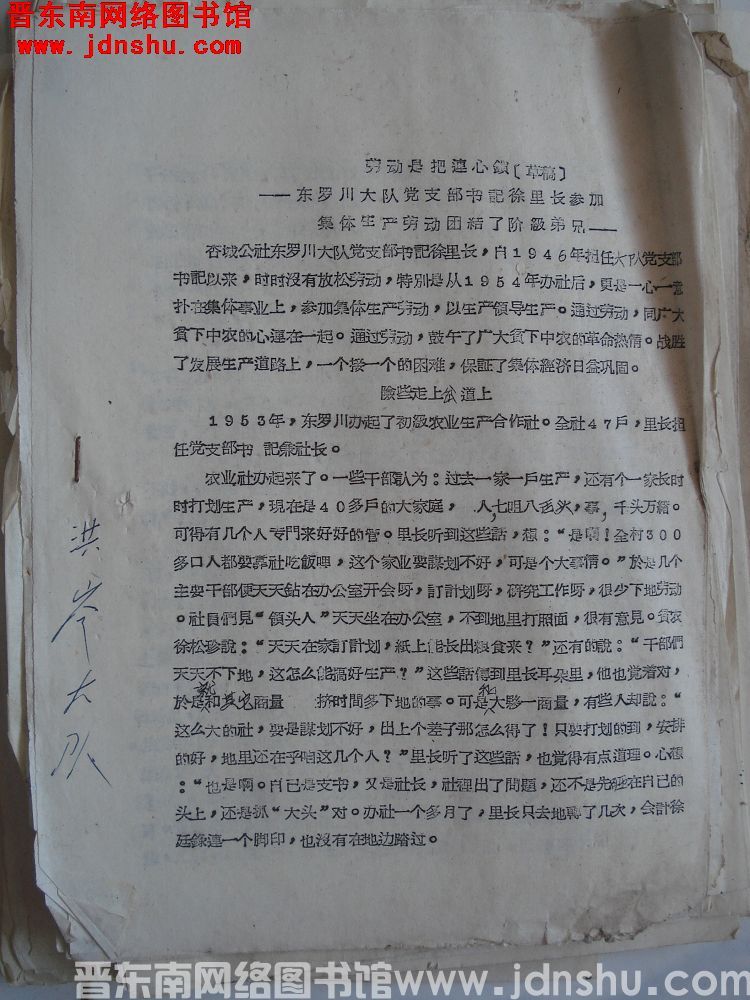 晋东南网络图书馆
www.jdnshu.com
劳动是把連心鎖〔草稿〕
——东罗川大队党支部书記徐里长参加
集体生产劳动团結了阶級弟兄——
杏城公社东罗川大队党支部书記徐里长，自1946年担任大队党支部
书記以来，时时没有放松劳动，特別是从1954年办社后，更是一心一意
扑在集体事业上，参加集体生产劳动，以生产领导生产。通过劳动，同广大
貧下中农的心連在一起。通过劳动，鼓午了广大貧下中农的革命热情。战胜
了发展生产道路上，一个接一个的困难，保証了集体經济日益巩固。
險些走上岔道上
1953年，东罗川办起了初級农业生产合作社。全社47戶，里长担
任党支部书 記兼社长。
农业社办起来了。一些干部認为：过去一家一戶生产，还有个一家长时
时打划生产，現在是40多戶的大家庭， 人，七咀八舌头，事，千头万緒。
可得有几个人专門来好好的管。里长听到这些話，想：“是啊！全村300
多口人都要靠社吃飯哩，这个家业要謀划不好，可是个大事情。”於是几个
主要干部便天天鉆在办公室开会呀，訂計划呀，研究工作呀，很少下地劳动
。社員們見“領头人”天天坐在办公室，不到地里打照面，很有意見。貧农
徐松珍說：“天天在家訂計划，紙上能长出粮食来？”还有的說：“干部們
天天不下地，这怎么能搞好生产？”这些話傳到里长耳朵里，他也觉着对，
於是就和其它商量 挤时间多下地的事。可是和大夥一商量，有些人却說：“
这么大的社，要是謀划不好，出上个差子那怎么得了！只要打划的到，安排
的好，地里还在乎咱这几个人？”里长听了这些話，也覚得有点道理。心想
：“也是啊。自己是支书，又是社长，社裡出了問題，还不是先碰在自己的
头上，还是抓“大头”对。办社一个多月了，里长只去地轉了几次，会計徐
廷錄連一个脚印，也沒有在地边踏过。
洪岑大队
晋东南网络图书馆www.jdnshu.com